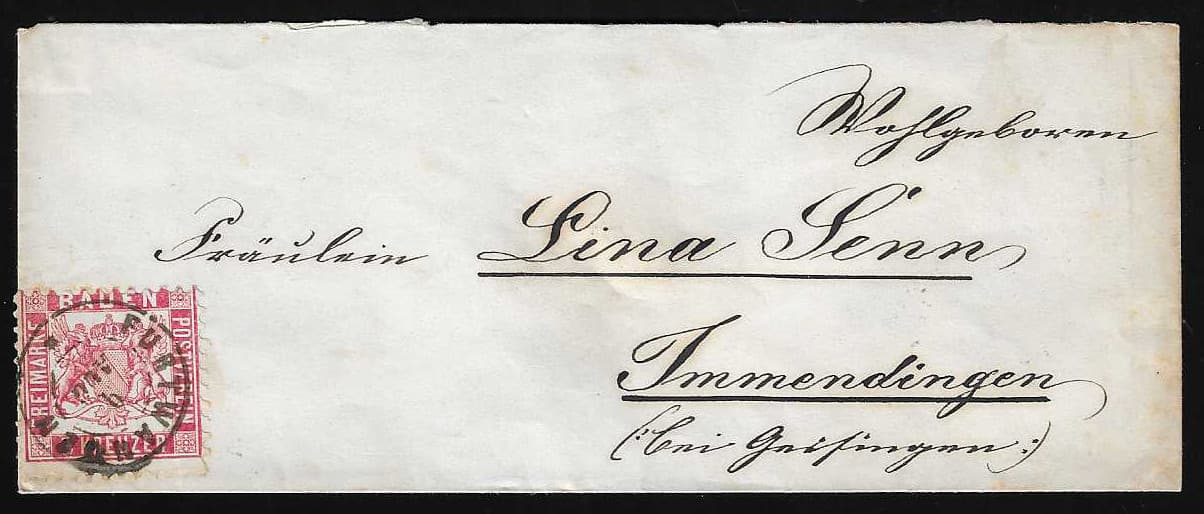 Wohlgeboren
Fräulein Lina Senn
Immendingen
(: bei Geisingen :)
BADEN
FREIMARKE
POSTVEREIN
KREUZER
FURTWANGEN
NOV